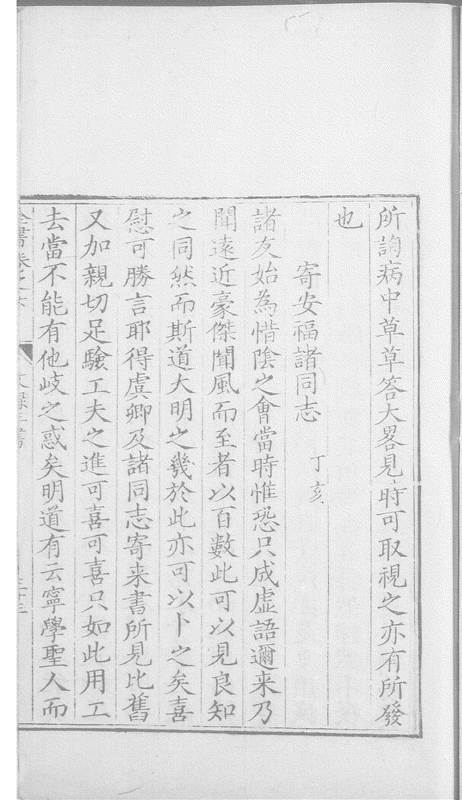 所詢病中草草答大畧見時可取視之亦有所發
也
寄安福諸同志 丁亥
諸友始為惜陰之會當時惟恐只成虛語邇来乃
聞遠近豪傑聞風而至者以百數此可以見良知
之同然而斯道大明之幾於此亦可以卜之矣喜
慰可勝言耶得虞卿及諸同志寄来書所見比舊
又加親切足驗工夫之進可喜可喜只如此用工
去當不能有他歧之惑矣明道有云寧學聖人而